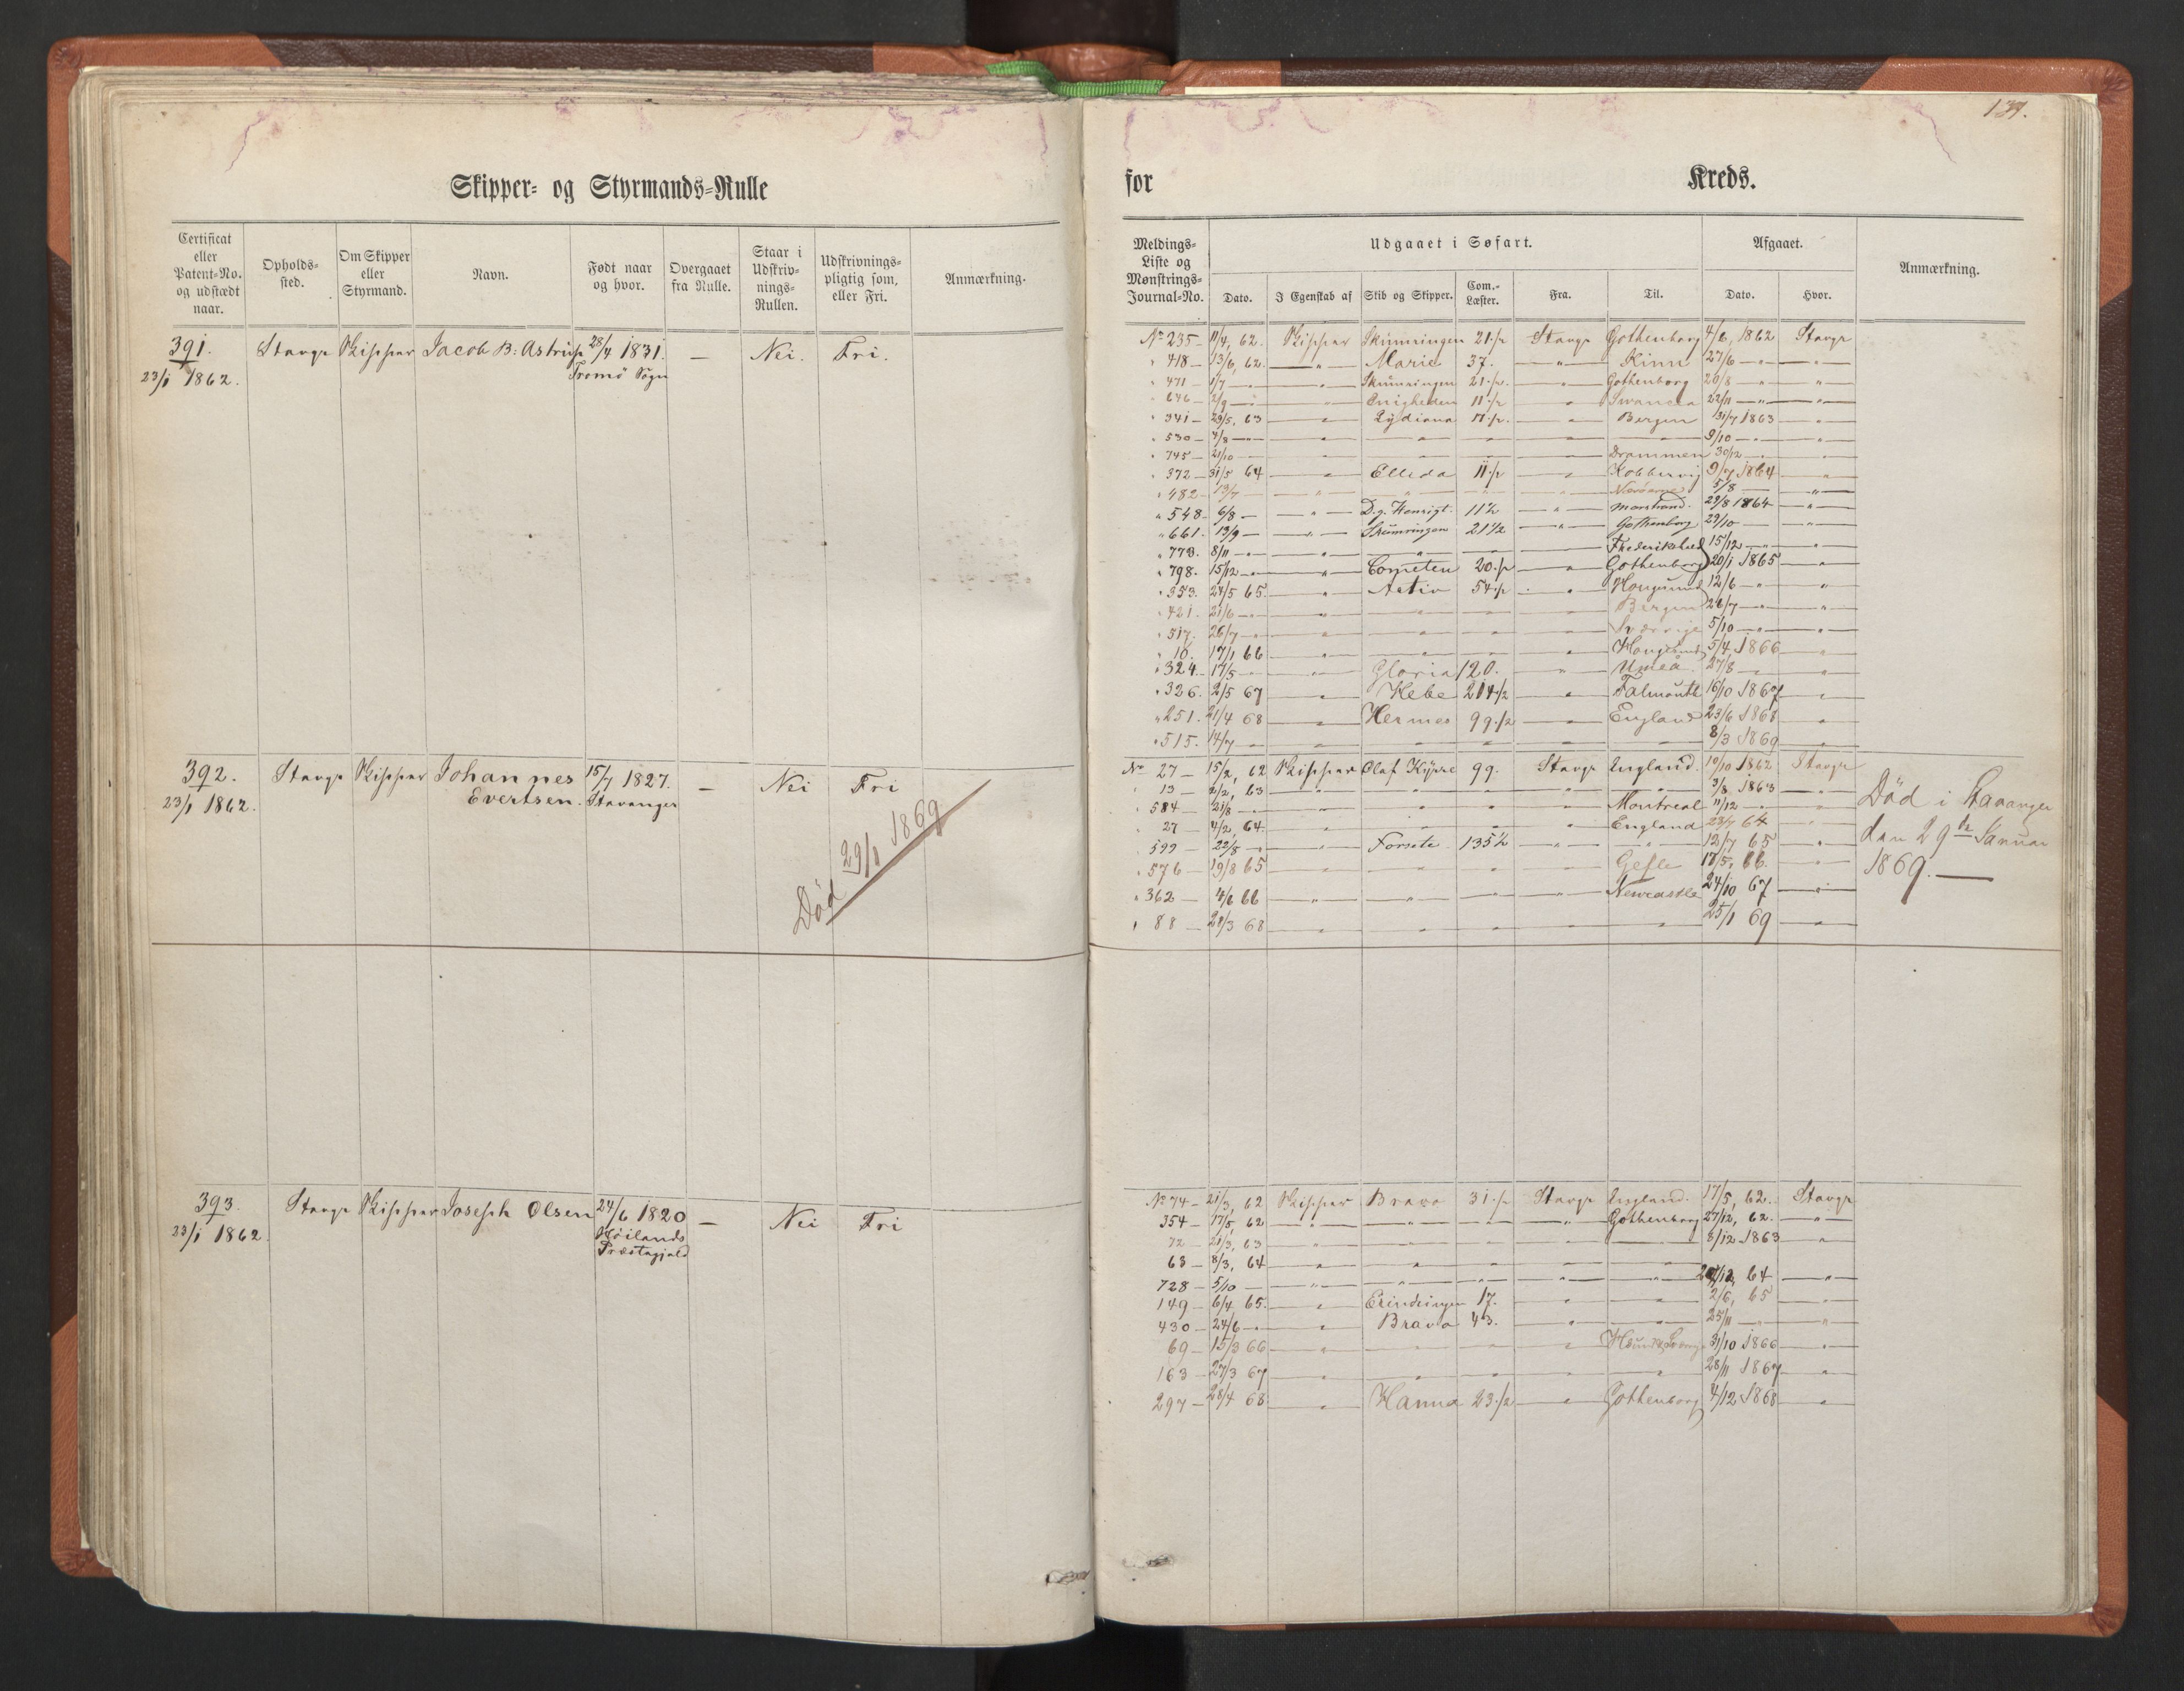 Skipper- og Styrmands-Rulle
Certificat eller Patent-No. og udstædt naar.
Opholds-sted.
Om Skipper eller Styrmand.
Navn.
Født naar og hvor.
Overgaaet fra Rulle.
Staar i Udskriv-nings-Rullen.
Udskrivnings-pligtig som, eller Fri.
Anmærkning.
391. Stavgr Skipper Jacob B: Astrup 28/4 1831. — Nei. Fri.
23/1 1862. Tromö Sogn
392. Stavgr Skipper Johannes 15/7 1827. — Nei Fri
23/1 1862. Evertsen. Stavanger
Død 29/1 1869
393. Stavgr Skipper Joseph Olsen 24/6 1820 — Nei Fri
23/1 1862. Höilands
Præstegjeld
139.
for Kreds.
Meldings-Liste og Mønstrings-Journal-No.
Udgaaet i Søfart.
Afgaaet.
Anmærkning.
Dato. I Egenskab af Skib og Skipper. Com.-Læster. Fra. Til. Dato. Hvor.
No 235 — 11/4, 62. Skipper Skumringen 21 ½ Stavgr Gothenborg 4/6, 1862 Stavgr
" 418 — 13/6, 62. — " — Marie 37. — " — Kinn 27/6 — " — "
" 471 — 1/7 — " — " Skumringen 21 ½ — " Gothenborg 20/8 — " — "
" 646 — 2/9 — " — " Enigheden 11 ½ " Swansea 22/11 — " — "
" 341 — 29/5, 63 — " — Lydiana 11 ½ — " — Bergen 31/7 1863 — "
" 530 — 4/8 — " — " — " — " — " — 9/10 — " — "
" 745 — 21/10 — " — " — " — " Drammen 30/12 — " — "
" 372 — 31/5 64 — " — Ellida 11 ½ — " Kobbervig 9/7 1864 — "
" 482 — 13/7 — " — " — " — " 5/8 — " —
" 548 — 6/8 — " — D. g. Hensigt. 11½ — " — Marstrand. 29/8 1864 — " —
" 661. 13/9 — " — Skumringen 21½ — " — Gothenborg 29/10 — " —
" 773. 8/11 — " — " — " — Frederikshald 15/12 — " — "
" 798. 15/12 — " — " Cometen 20 ½ — " Gothenborg 20/1 1865 — "
" 353. 24/5 65. — " Activ 54 ½ — " Haugesund 12/6 — " — "
" 421. 21/6 — " — " — " — " Bergen 26/7 — " — "
" 517. 26/7 — " — " — " — " Sverrige 5/10 — " — "
" 10. 17/1 66 — " — " — " — " Haugesund 5/4 1866 — "
" 324. 17/5 — " — " Gloria 120. " Umeå. 27/8 — " — "
" 326. 2/5 67 — " Hebe 214 ½ — " Falmouth 16/10 1867 — "
" 251. 21/4 68 — " Hermes 99 ½ — " England 23/6 1868 — "
" 515. 14/7 — " — " — " — " — " 8/3 1869 — "
No 27 — 15/2, 62 Skipper Olaf Kyrre 99. Stavgr England. 10/10 1862 Stavgr
" 13 — 2/2, 63 — " — " — " — " — " 3/8. 1863 — "
" 584 — 21/8 — " — " — " — " Montreal 11/12 — " — "
" 27 — 4/2, 64. — " — " — " — " England 23/7 64 — " —
" 599 — 22/8 — " — " Forsete. 135½ — " — " 12/7 65 — "
" 576 — 19/8 65 — " — " — " — " Gefle 17/5, 66. — " —
" 362 — 4/6 66 — " — " — " — " Newcastle 24/10 67 — " —
" 88 — 21/3 68 — " — " — " — " — " 25/1 69 — "
Död i Stavanger
den 29de Januar
1869. —
No 74 — 21/3, 62 Skipper Bravo 31 ½ Stavgr England. 17/5, 62. Stavgr
354 — 17/5, 62 — " — " — " — " Gothenborg 27/12, 62. — " —
72 — 21/3, 63 — " — " — " — " — " 8/12 1863 — "
63 — 8/3, 64 — " — " — " — " — "
728 — 5/10 — " — " — " — " — " /12, 64 — " —
149 — 6/4 65. — " Erindringen 17. — " — " 2/6, 65 — "
430 — 24/6 — " — " Bravo 43. " " 25/11 — " — "
69 — 15/3 66 — " — " — " — " 31/10 1866 — "
163 — 27/3 67 — " — " — " — " — " 28/11 1867 — "
297 — 28/4 68 — " Hanna 23 ½ — " Gothenborg 4/12 1868 — "